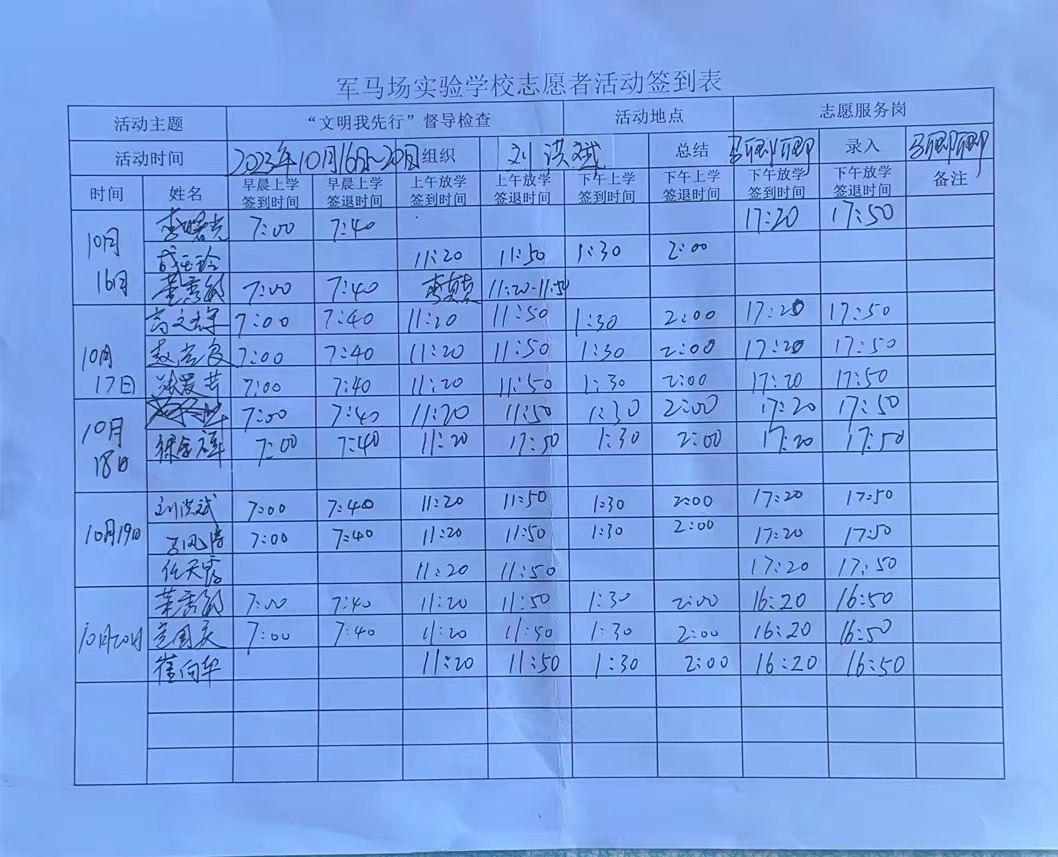 军马场实验学校志愿者活动签到表
活动主题 “文明我先行”督导检查 活动地点 志愿服务岗
活动时间 2023年10月16日~20日 组织 刘洪斌 总结 录入
时间 姓名 早晨上学签到时间 早晨上学签退时间 上午放学签到时间 上午放学签退时间 下午上学签到时间 下午上学签退时间 下午放学签到时间 下午放学签退时间 备注
10月16日 李曙光 7:00 7:40 17:20 17:50
11:20 11:50 1:30 2:00
董秀敏 7:00 7:40 11:20-11:50
10月17日 7:00 7:40 11:20 11:50 1:30 2:00 17:20 17:50
7:00 7:40 11:20 11:50 1:30 2:00 17:20 17:50
张爱芸 7:00 7:40 11:20 11:50 1:30 2:00 17:20 17:50
10月18日 7:00 7:40 11:20 11:50 1:30 2:00 17:20 17:50
7:00 7:40 11:20 17:50 1:30 2:00 17:20 17:50
10月19日 刘洪斌 7:00 7:40 11:20 11:50 1:30 2:00 17:20 17:50
7:00 7:40 11:20 11:50 1:30 2:00 17:20 17:50
任天秀 11:20 11:50 17:20 17:50
10月20日 董秀敏 7:00 7:40 11:20 11:50 1:30 2:00 16:20 16:50
国庆 7:00 7:40 11:20 11:50 1:30 2:00 16:20 16:50
崔向华 11:20 11:50 1:30 2:00 16:20 16:50